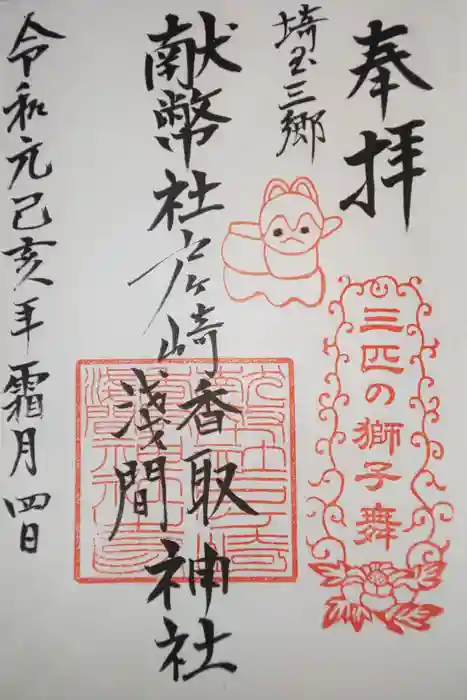 奉拝
三匹の獅子舞
埼玉三郷
献幣社戸ヶ崎香取神社
浅間
令和元己亥年霜月四日